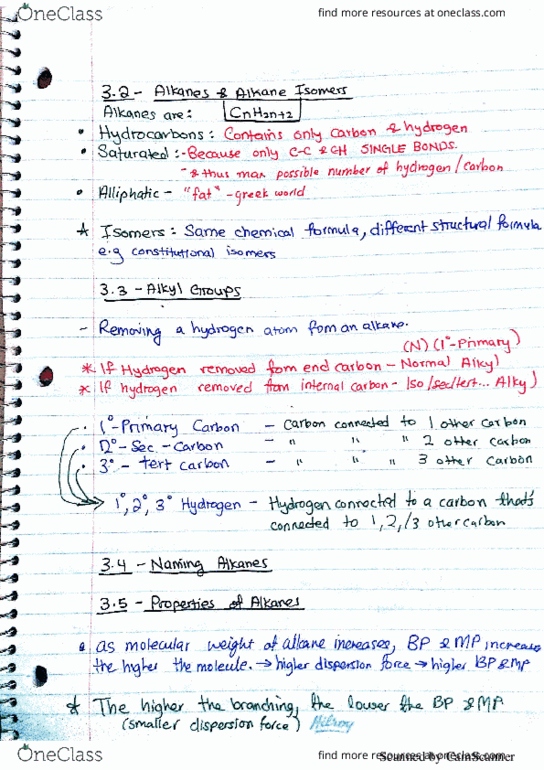 OneClass
find more resources at oneclass.com
3.2 - Alkanes & Alkane Isomers
Alkanes are: CnH2n+2
• Hydrocarbons: Contains only carbon & hydrogen
• Saturated:- Because only C-C & CH SINGLE BONDS.
- & thus max possible number of hydrogen/carbon
• Alliphatic - "fat" - greek world
* Isomers: Same chemical formula, different structural formula
e.g constitutional isomers
3.3 - Alkyl Groups
- Removing a hydrogen atom fom an alkane.
(N) (1°-Primary)
* If Hydrogen removed fom end carbon - Normal Alkyl
* If hydrogen removed from internal carbon - Iso/sec/tert... Alkyl
• 1°-Primary Carbon - Carbon connected to 1 other carbon
• 2°- Sec - Carbon - " " " 2 other carbon
• 3° - tert carbon - " " " 3 other carbon
1°, 2°, 3° Hydrogen - Hydrogen connected to a carbon that's
connected to 1, 2, /3 other carbon
3.4 - Naming Alkanes
3.5 - Properties of Alkanes
• as molecular weight of alkane increases, BP & MP increase
the higher the molecule. → higher dispersion force → higher BP & MP
* The higher the branching, the lower the BP & MP
(smaller dispersion force) Hilroy
OneClass
find more resources at oneclass.com
Scanned by CamScanner